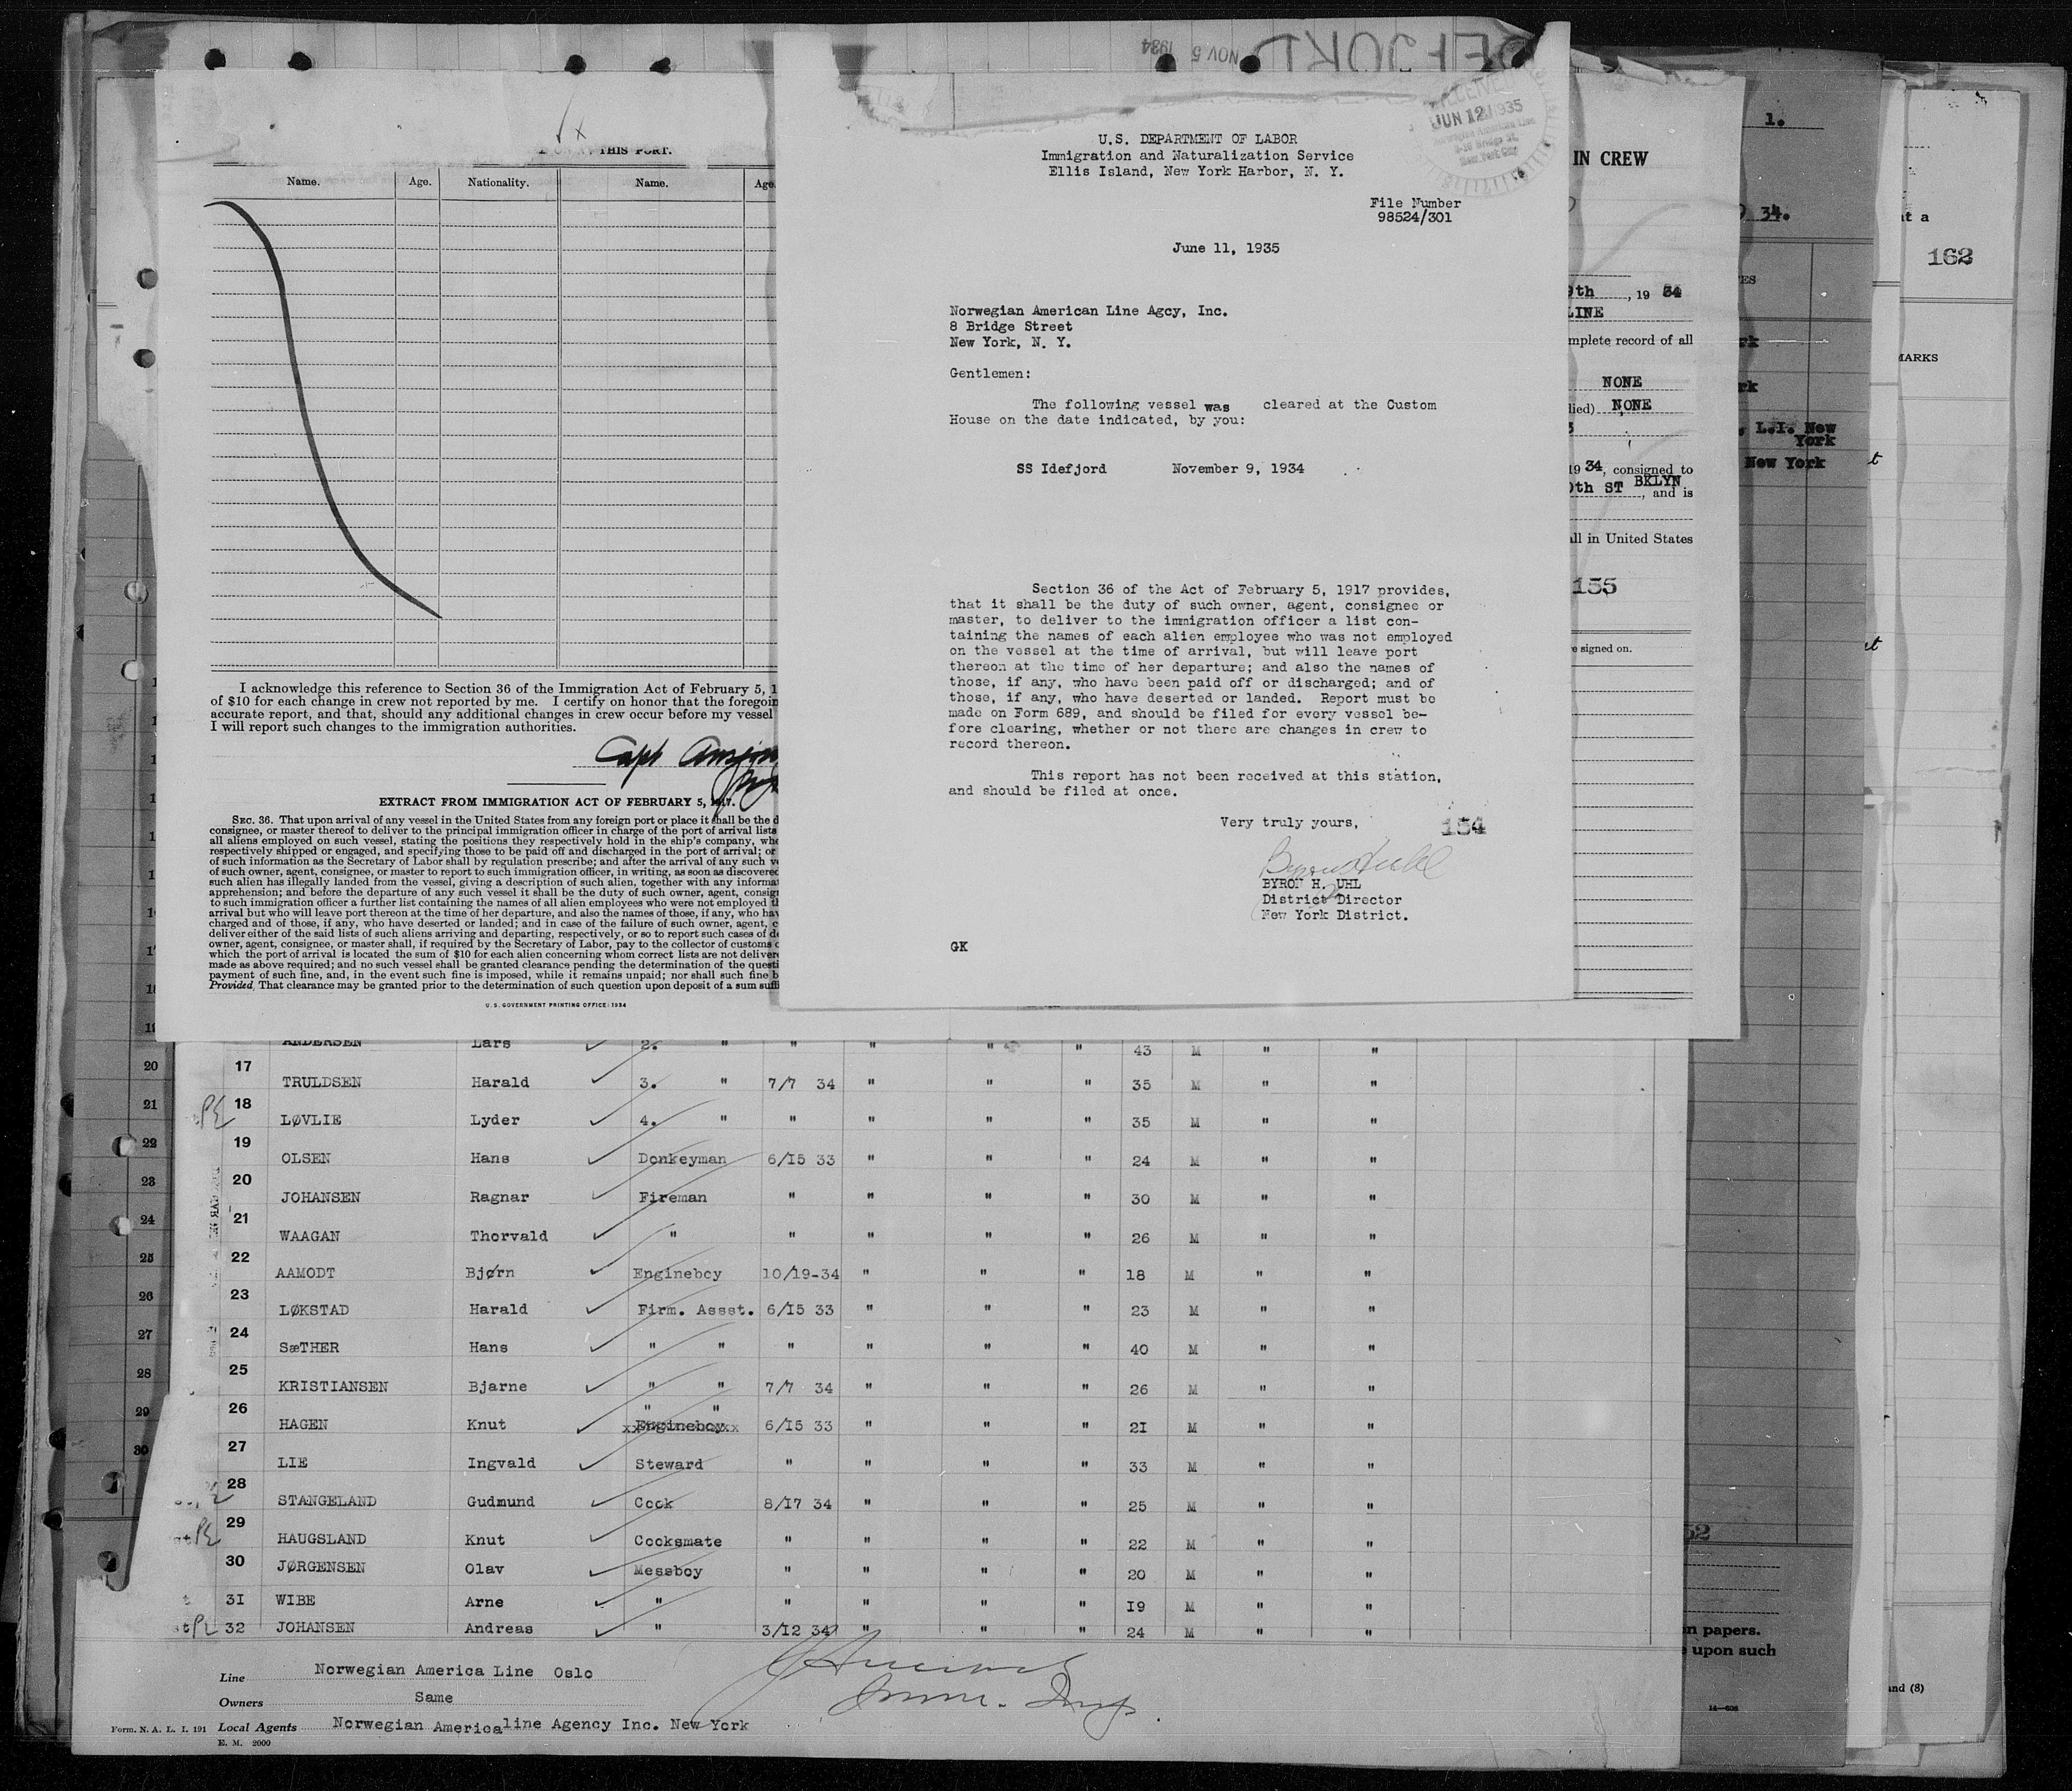 NOV 5 1934
THIS PORT.
Name. Age. Nationality. Name. Age.
I acknowledge this reference to Section 36 of the Immigration Act of February 5, 1
of $10 for each change in crew not reported by me. I certify on honor that the foregoin
accurate report, and that, should any additional changes in crew occur before my vessel
I will report such changes to the immigration authorities.
Capt
EXTRACT FROM IMMIGRATION ACT OF FEBRUARY 5, 1917.
SEC. 36. That upon arrival of any vessel in the United States from any foreign port or place it shall be the d
consignee, or master thereof to deliver to the principal immigration officer in charge of the port of arrival lists
all aliens employed on such vessel, stating the positions they respectively hold in the ship's company, whe
respectively shipped or engaged, and specifying those to be paid off and discharged in the port of arrival; or
of such information as the Secretary of Labor shall by regulation prescribe; and after the arrival of any such v
of such owner, agent, consignee, or master to report to such immigration officer, in writing, as soon as discovered
such alien has illegally landed from the vessel, giving a description of such alien, together with any informa
apprehension; and before the departure of any such vessel it shall be the duty of such owner, agent, consig
to such immigration officer a further list containing the names of all alien employees who were not employed t
arrival but who will leave port thereon at the time of her departure, and also the names of those, if any, who hav
charged and of those, if any, who have deserted or landed; and in case of the failure of such owner, agent, c
deliver either of the said lists of such aliens arriving and departing, respectively, or so to report such cases of de
owner, agent, consignee, or master shall, if required by the Secretary of Labor, pay to the collector of customs o
which the port of arrival is located the sum of $10 for each alien concerning whom correct lists are not deliver
made as above required; and no such vessel shall be granted clearance pending the determination of the questi
payment of such fine, and, in the event such fine is imposed, while it remains unpaid; nor shall such fine b
Provided, That clearance may be granted prior to the determination of such question upon deposit of a sum suffi
U. S. GOVERNMENT PRINTING OFFICE: 1934
JUN 12 1935
U.S. DEPARTMENT OF LABOR
Immigration and Naturalization Service
Ellis Island, New York Harbor, N. Y.
File Number
98524/301
June 11, 1935
Norwegian American Line Agcy, Inc.
8 Bridge Street
New York, N. Y.
Gentlemen:
The following vessel was cleared at the Custom
House on the date indicated, by you:
SS Idefjord November 9, 1934
Section 36 of the Act of February 5, 1917 provides,
that it shall be the duty of such owner, agent, consignee or
master, to deliver to the immigration officer a list con-
taining the names of each alien employee who was not employed
on the vessel at the time of arrival, but will leave port
thereon at the time of her departure; and also the names of
those, if any, who have been paid off or discharged; and of
those, if any, who have deserted or landed. Report must be
made on Form 689, and should be filed for every vessel be-
fore clearing, whether or not there are changes in crew to
record thereon.
This report has not been received at this station,
and should be filed at once.
Very truly yours,
154
BYRON H. UHL
District Director
New York District.
GK
IN CREW
9th, 19 34
LINE
mplete record of all
NONE
lied) NONE
19 34, consigned to
0th ST BKLYN, and is
all in United States
155
e signed on.
1.
34.
L.I. New
York
New York
at a
162
MARKS
ANDERSEN Lars 2. " " " " " 43 M " "
17 TRULDSEN Harald 3. " 7/7 34 " " " 35 M " "
18 LØVLIE Lyder 4. " " " " " 35 M " "
19 OLSEN Hans Donkeyman 6/15 33 " " " 24 M " "
20 JOHANSEN Ragnar Fireman " " " " 30 M " "
21 WAAGAN Thorvald " " " " " 26 M " "
22 AAMODT Bjørn Engineboy 10/19-34 " " " 18 M " "
23 LØKSTAD Harald Firm. Assst. 6/15 33 " " " 23 M " "
24 SæTHER Hans " " " " " " 40 M " "
25 KRISTIANSEN Bjarne " " 7/7 34 " " " 26 M " "
26 HAGEN Knut " " Engineboy 6/15 33 " " " 21 M " "
27 LIE Ingvald Steward " " " " 33 M " "
28 STANGELAND Gudmund Cook 8/17 34 " " " 25 M " "
29 HAUGSLAND Knut Cooksmate " " " " 22 M " "
30 JØRGENSEN Olav Messboy " " " " 20 M " "
31 WIBE Arne " " " " " 19 M " "
32 JOHANSEN Andreas " 3/12 34 " " " 24 M " "
Line Norwegian America Line Oslo
Owners Same
Form. N. A. L. I. 191 Local Agents Norwegian America line Agency Inc. New York
E. M. 2000
20
21
22
23
24
25
26
27
28
29
30
52
n papers.
upon such
and (8)